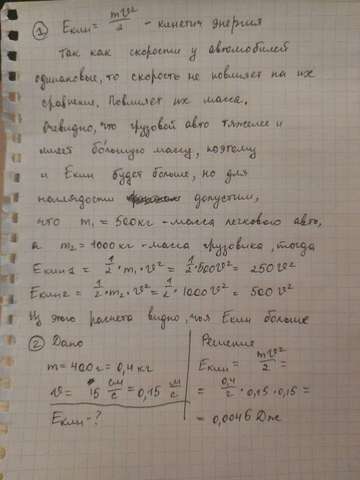 ① Eкин = mv²/2 - кинетич энергия
Так как скорости у автомобилей
одинаковые, то скорость не повлияет на их
сравнение. Повлияет их масса.
Очевидно, что грузовой авто тяжелее и
имеет бо́льшую массу, поэтому
и Eкин будет больше, но для
наглядости допустим,
что m₁ = 500кг - масса легкового авто,
а m₂ = 1000 кг - масса грузовика, тогда
Eкин1 = 1/2 · m₁ · v² = 1/2 · 500v² = 250 v²
Eкин2 = 1/2 · m₂ · v² = 1/2 · 1000 v² = 500 v²
Из этого расчета видно, чья Eкин больше
② Дано
m = 400 г = 0,4 кг
v = 15 см/с = 0,15 м/с
Eкин - ?
Решение
Eкин = mv²/2 =
= 0,4/2 · 0,15 · 0,15 =
= 0,0046 Дж